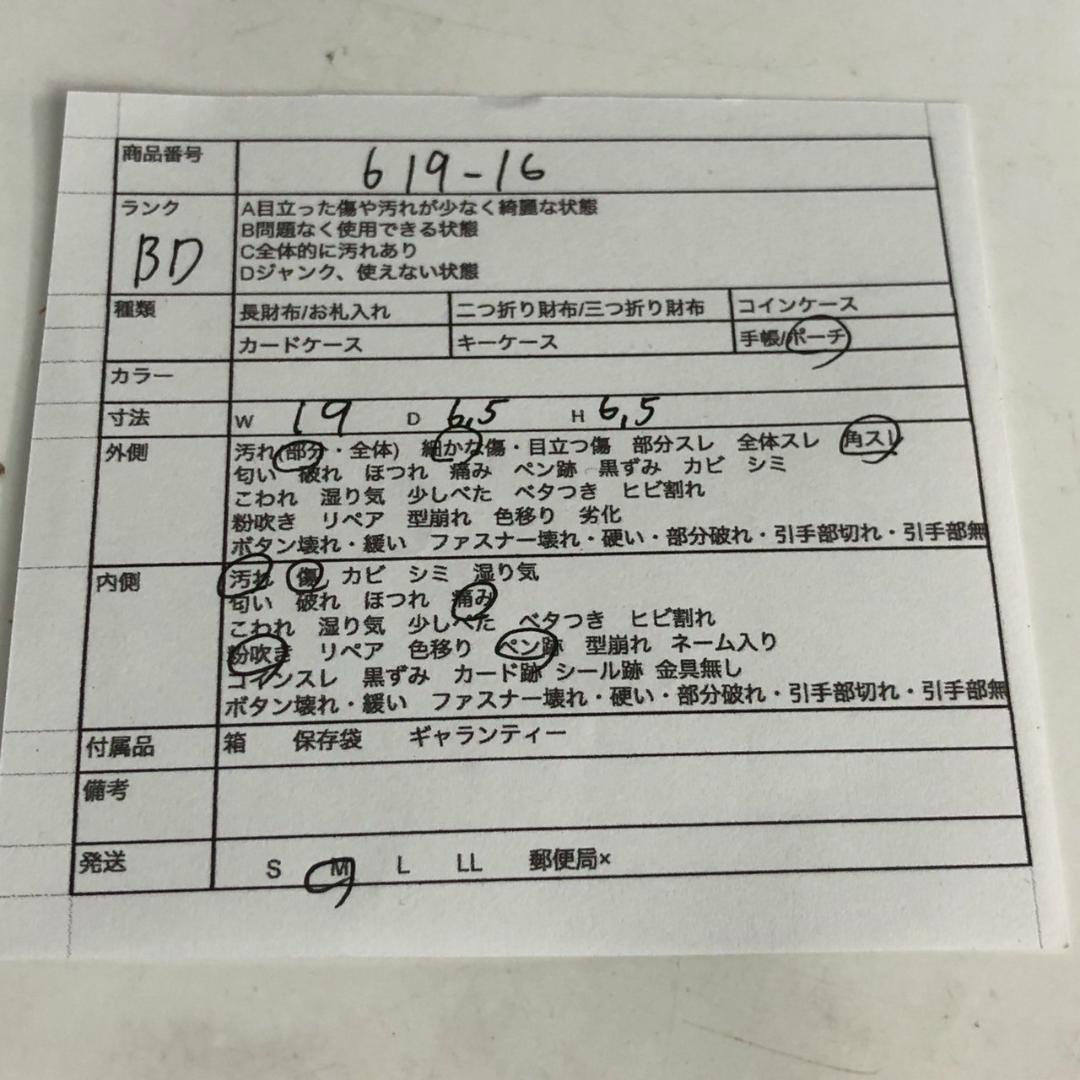 商品番号 619-16
ランク BD
A目立った傷や汚れが少なく綺麗な状態
B問題なく使用できる状態
C全体的に汚れあり
Dジャンク、使えない状態
種類 長財布/お札入れ 二つ折り財布/三つ折り財布 コインケース
カードケース キーケース 手帳/ポーチ
カラー
寸法 W 19 D 6,5 H 6,5
外側 汚れ(部分・全体) 細かな傷・目立つ傷 部分スレ 全体スレ 角スレ
匂い 破れ ほつれ 痛み ペン跡 黒ずみ カビ シミ
こわれ 湿り気 少しべた ベタつき ヒビ割れ
粉吹き リペア 型崩れ 色移り 劣化
ボタン壊れ・緩い ファスナー壊れ・硬い・部分破れ・引手部切れ・引手部無
内側 汚れ 傷 カビ シミ 湿り気
匂い 破れ ほつれ 痛み
こわれ 湿り気 少しべた ベタつき ヒビ割れ
粉吹き リペア 色移り ペン跡 型崩れ ネーム入り
コインスレ 黒ずみ カード跡 シール跡 金具無し
ボタン壊れ・緩い ファスナー壊れ・硬い・部分破れ・引手部切れ・引手部無
付属品 箱 保存袋 ギャランティー
備考
発送 S M L LL 郵便局×